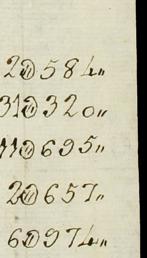 2$584"
31$320"
11$695"
2$657"
6$974"